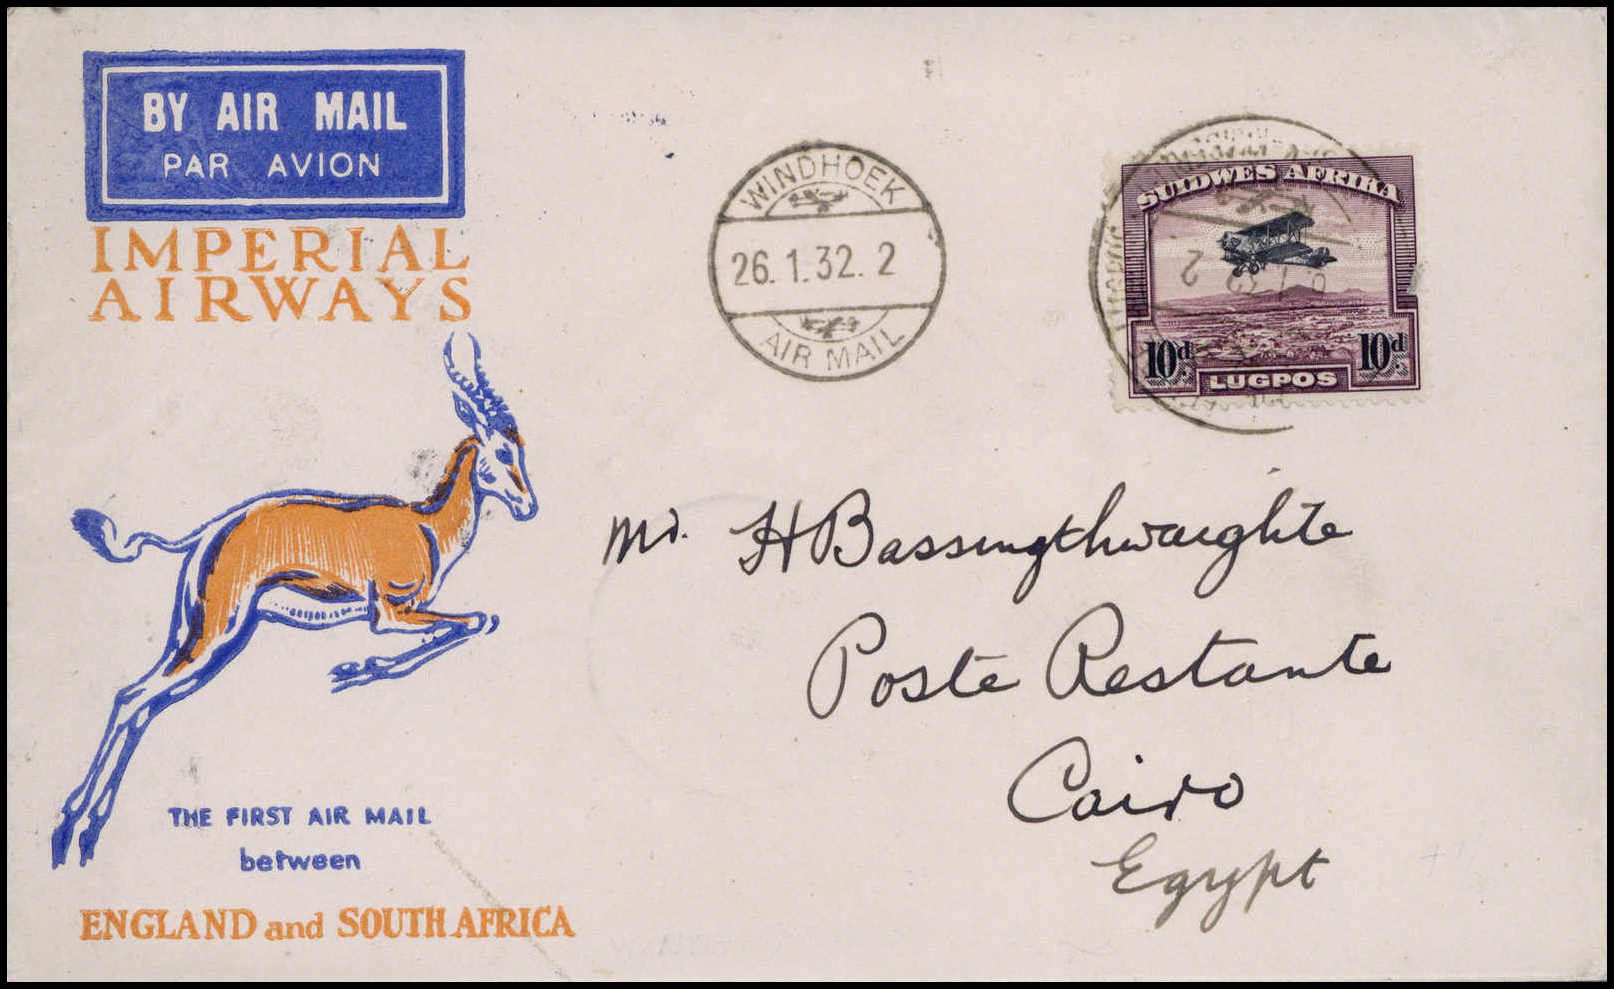 BY AIR MAIL
PAR AVION
IMPERIAL
AIRWAYS
WINDHOEK
26.1.32.2
AIR MAIL
SUIDWES AFRIKA
10d. 10d.
LUGPOS
Mr. H Bassingthwaighte
Poste Restante
Cairo
Egypt
THE FIRST AIR MAIL
between
ENGLAND and SOUTH AFRICA